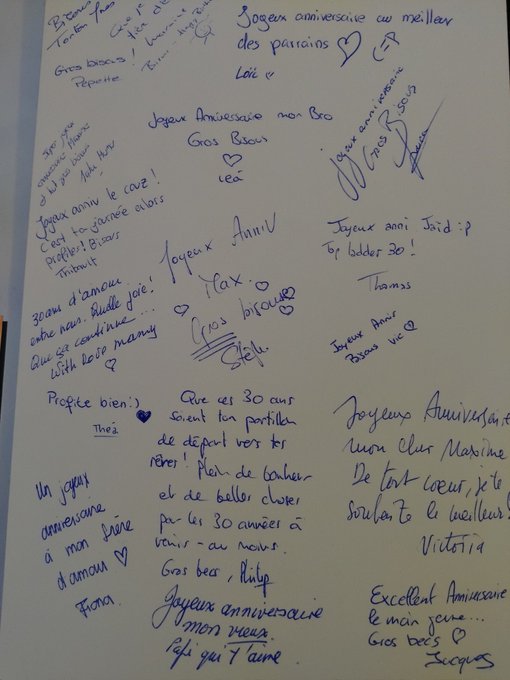 Tonton
Gros bisous !
Pepette
Joyeux anniversaire au meilleur
des parrains ♡
Loïc
Joyeux Anniversaire mon Bro
Gros Bisous
♡
Léa
Joyeux anniversaire
Gros Bisous
Joyeux anniv le couz !
C'est ta journée alors
profites ! Bisous
Thibault
Joyeux Anniv
Max. ♡
Gros bisous ♡
Stéph
Joyeux anni Jaïd :p
Top ladder 30 !
Thomas
30 ans d'amour
entre nous. Quelle joie !
Que ça continue...
With love mamy
♡
Joyeux Anniv
Bisous Vic ♡
Profite bien :)
Théa
Que ces 30 ans
soient ton portillon
de départ vers tes
rêves ! Plein de bonheur
et de belles choses
par les 30 années à
venir - au moins.
Gros becs, Philip
Joyeux Anniversaire
mon cher Maxime
De tout coeur, je te
souhaite le meilleur !
Victoria
Un joyeux
anniversaire
à mon frère
d'amour ♡
Fiona.
Joyeux anniversaire
mon vieux.
Papi qui t'aime.
Excellent Anniversaire
le main jeune...
Gros becs ♡
Jacques